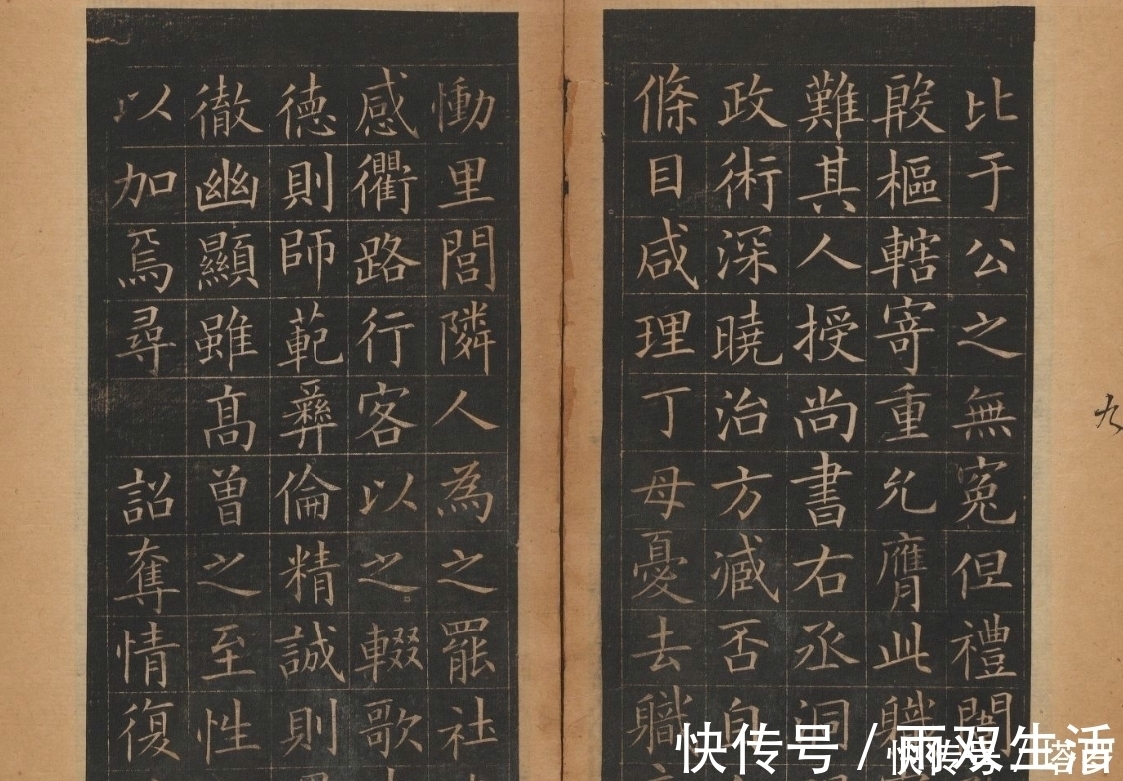 比于公之無冤但禮闈
殷樞轄寄重允膺此職
難其人授尚書右丞洞
政術深曉治方臧否自
條目咸理丁母憂去職
慟里閭隣人為之罷社
感衢路行客以之輟歌
徳則師範彝倫精誠則
徹幽顯雖髙曽之至性
以加焉尋 詔奪情復
九
快传号 / 雨双生活
快传号